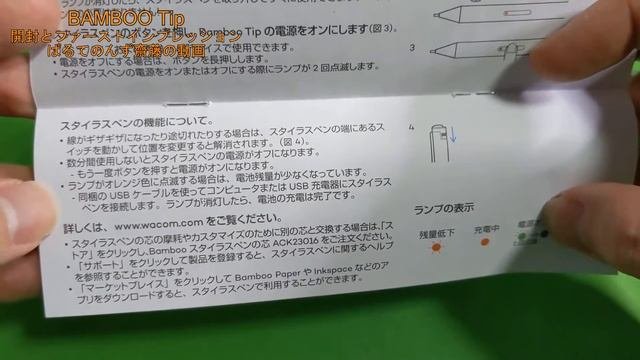 BAMBOO Tip
開封とファーストインプレッション
ぱるてのんず齋藤の動画
Bamboo Tip の電源をオンにします(図 3)。
3
• 電源をオフにする場合は、ボタンを長押しします。
• スタイラスペンの電源をオンまたはオフにする際にランプが 2 回点滅します。
スタイラスペンの機能について。
• 線がギザギザになったり途切れたりする場合は、スタイラスペンの端にあるス
イッチを動かして位置を変更すると解消されます。(図 4)。
• 数分間使用しないとスタイラスペンの電源がオフになります。
- もう一度ボタンを押すと電源がオンになります。
• ランプがオレンジ色に点滅する場合は、電池残量が少なくなっています。
- 同梱の USB ケーブルを使ってコンピュータまたは USB 充電器にスタイラス
ペンを接続します。ランプが消灯したら、電池の充電は完了です。
4
詳しくは、www.wacom.com をご覧ください。
• スタイラスペンの芯の摩耗やカスタマイズのために別の芯と交換する場合は、「ス
トア」をクリックし、Bamboo スタイラスペンの芯 ACK23016 をご注文ください。
• 「サポート」をクリックして製品を登録すると、スタイラスペンに関するヘルプ
を参照することができます。
• 「マーケットプレイス」をクリックして Bamboo Paper や Inkspace などのア
プリをダウンロードすると、スタイラスペンで利用することができます。
ランプの表示
残量低下
充電中
電源